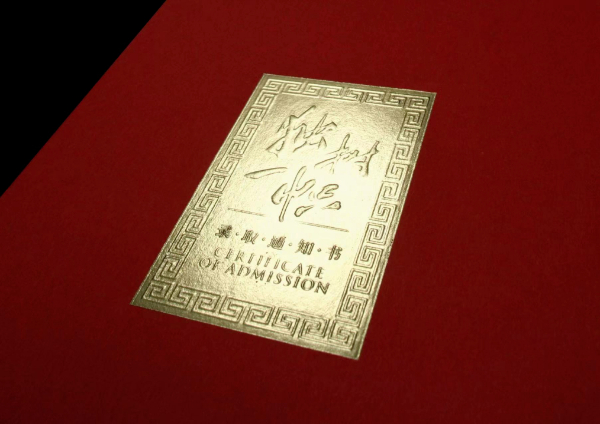 独树
一帜
录·取·通·知·书
CERTIFICATE
OF ADMISSION